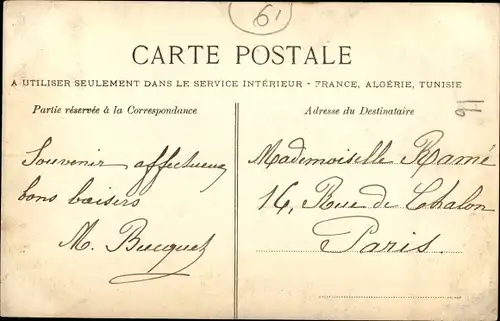 61
CARTE POSTALE
A UTILISER SEULEMENT DANS LE SERVICE INTÉRIEUR - FRANCE, ALGÉRIE, TUNISIE
Partie réservée à la Correspondance
Adresse du Destinataire
91
Souvenir affectueux
bons baisers
M. Bucquet
Mademoiselle Ramé
16, Rue de Chalon
Paris.